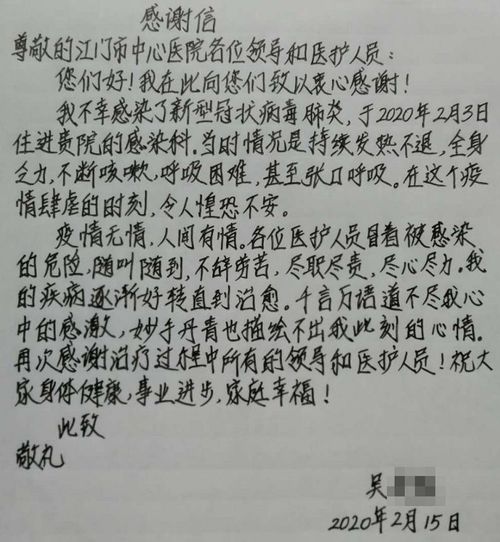 感谢信
尊敬的江门市中心医院各位领导和医护人员：
您们好！我在此向您们致以衷心感谢！
我不幸感染了新型冠状病毒肺炎，于2020年2月3日
住进贵院的感染科。当时情况是持续发热不退，全身
乏力，不断咳嗽，呼吸困难，甚至张口呼吸。在这个疫
情肆虐的时刻，令人惶恐不安。
疫情无情，人间有情。各位医护人员冒着被感染
的危险，随叫随到，不辞劳苦，尽职尽责，尽心尽力。我
的疾病逐渐好转直到治愈。千言万语道不尽我心
中的感激，妙手丹青也描绘不出我此刻的心情。
再次感谢治疗过程中所有的领导和医护人员！祝大
家身体健康，事业进步，家庭幸福！
此致
敬礼
吴
2020年2月15日